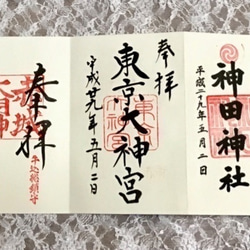 神田神社
平成二十九年五月二日
奉拝
東京大神宮
平成廿九年五月二日
奉拝
牛込総鎮守